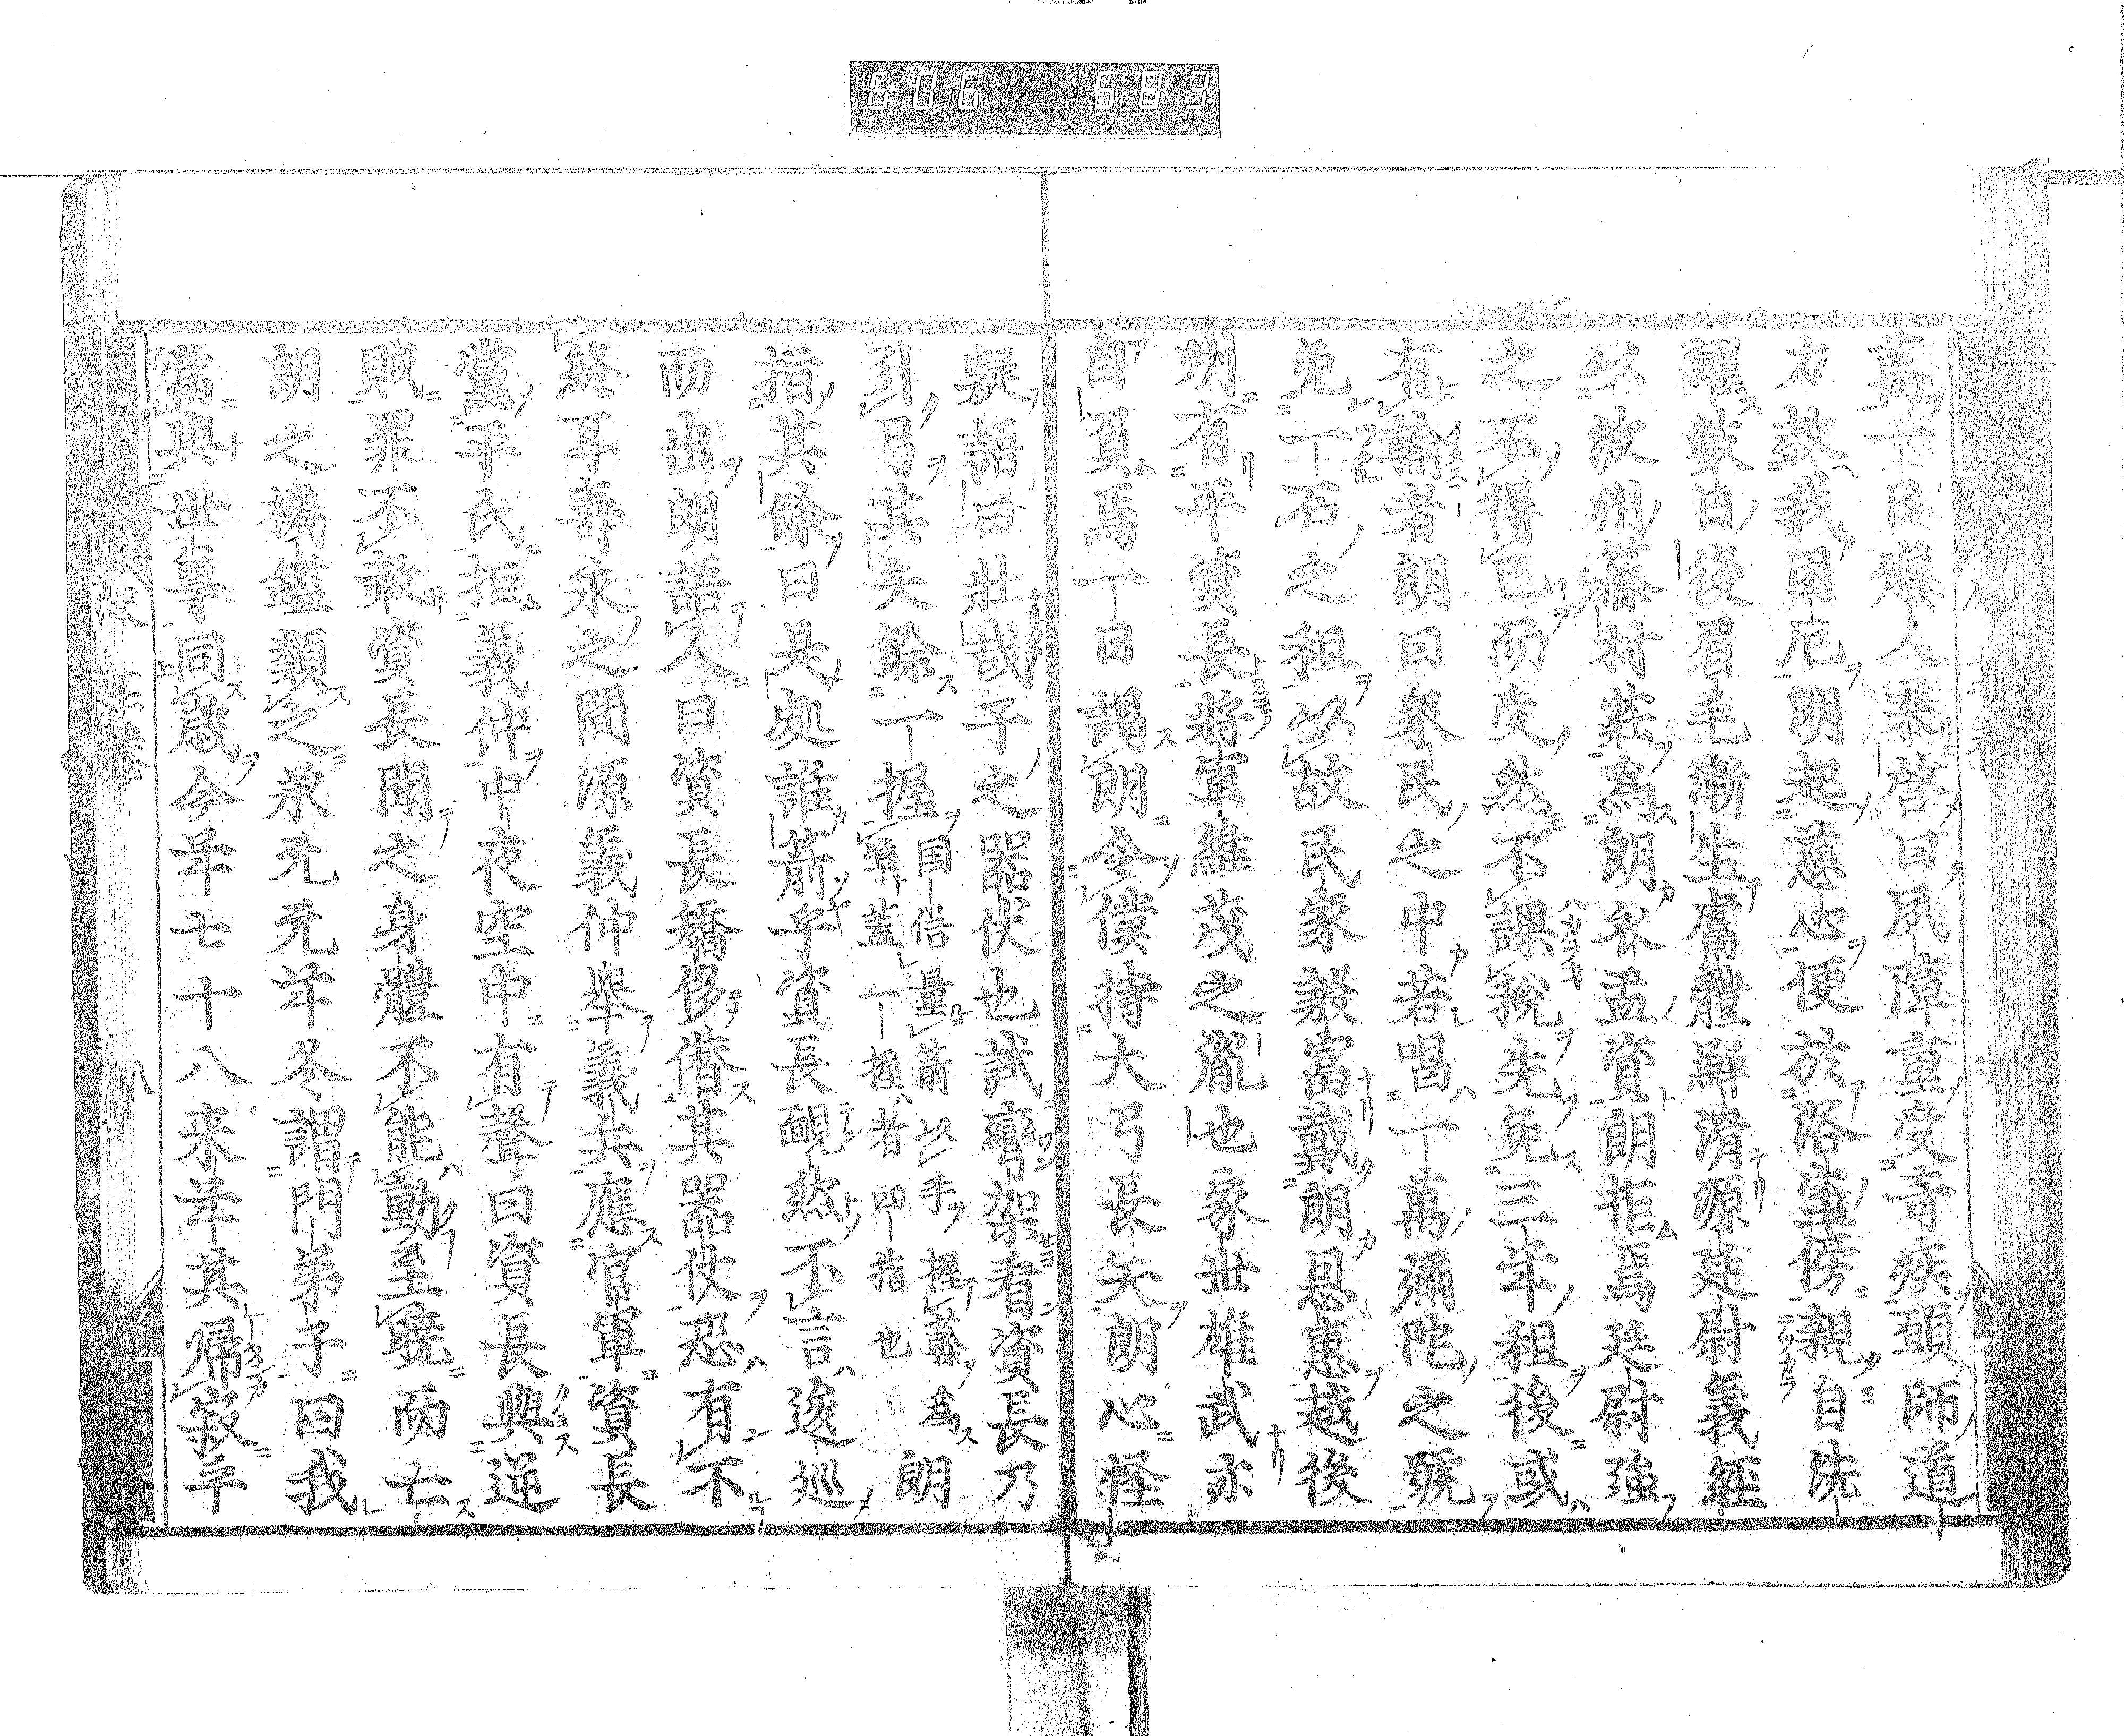 606 683
萬一日癩人來啓曰夙障重受奇疾願師道
力救我困厄朗起慈心便於浴室傍親自洗
濯數日後眉毛漸生膚體鮮淆源廷尉義經
以波州簱村莊為朗衣盂資朗拒焉廷尉強
之不得已而受然不課稅先免三年租後或
有輸者朗曰聚民之中若唱一萬彌陀之號
免一石之租以故民家殷富戴朗恩惠越後
州有平資長將軍維茂之胤也家世雄武亦
自負焉一日謁朗令僕持大弓長矢朗心怪
疑語曰壯哉子之器伏也試彎架看資長乃
引弓其矢餘一握国俗量箭以手握藤為
準蓋一握者四指也朗
指其餘曰是處誰箭乎資長靦然不言逡巡
而出朗語人曰資長矯侈僭其器仗恐有不
終耳壽永之間源義仲舉義兵應官軍資長
黨平氏拒義仲中夜空中有聲曰資長與逆
賊罪不赦資長聞之身體不能動至曉而亡
朗之機鑑類之承元元年冬謂門弟子曰我
當與世尊同歲今年七十八来年其帰寂乎
八